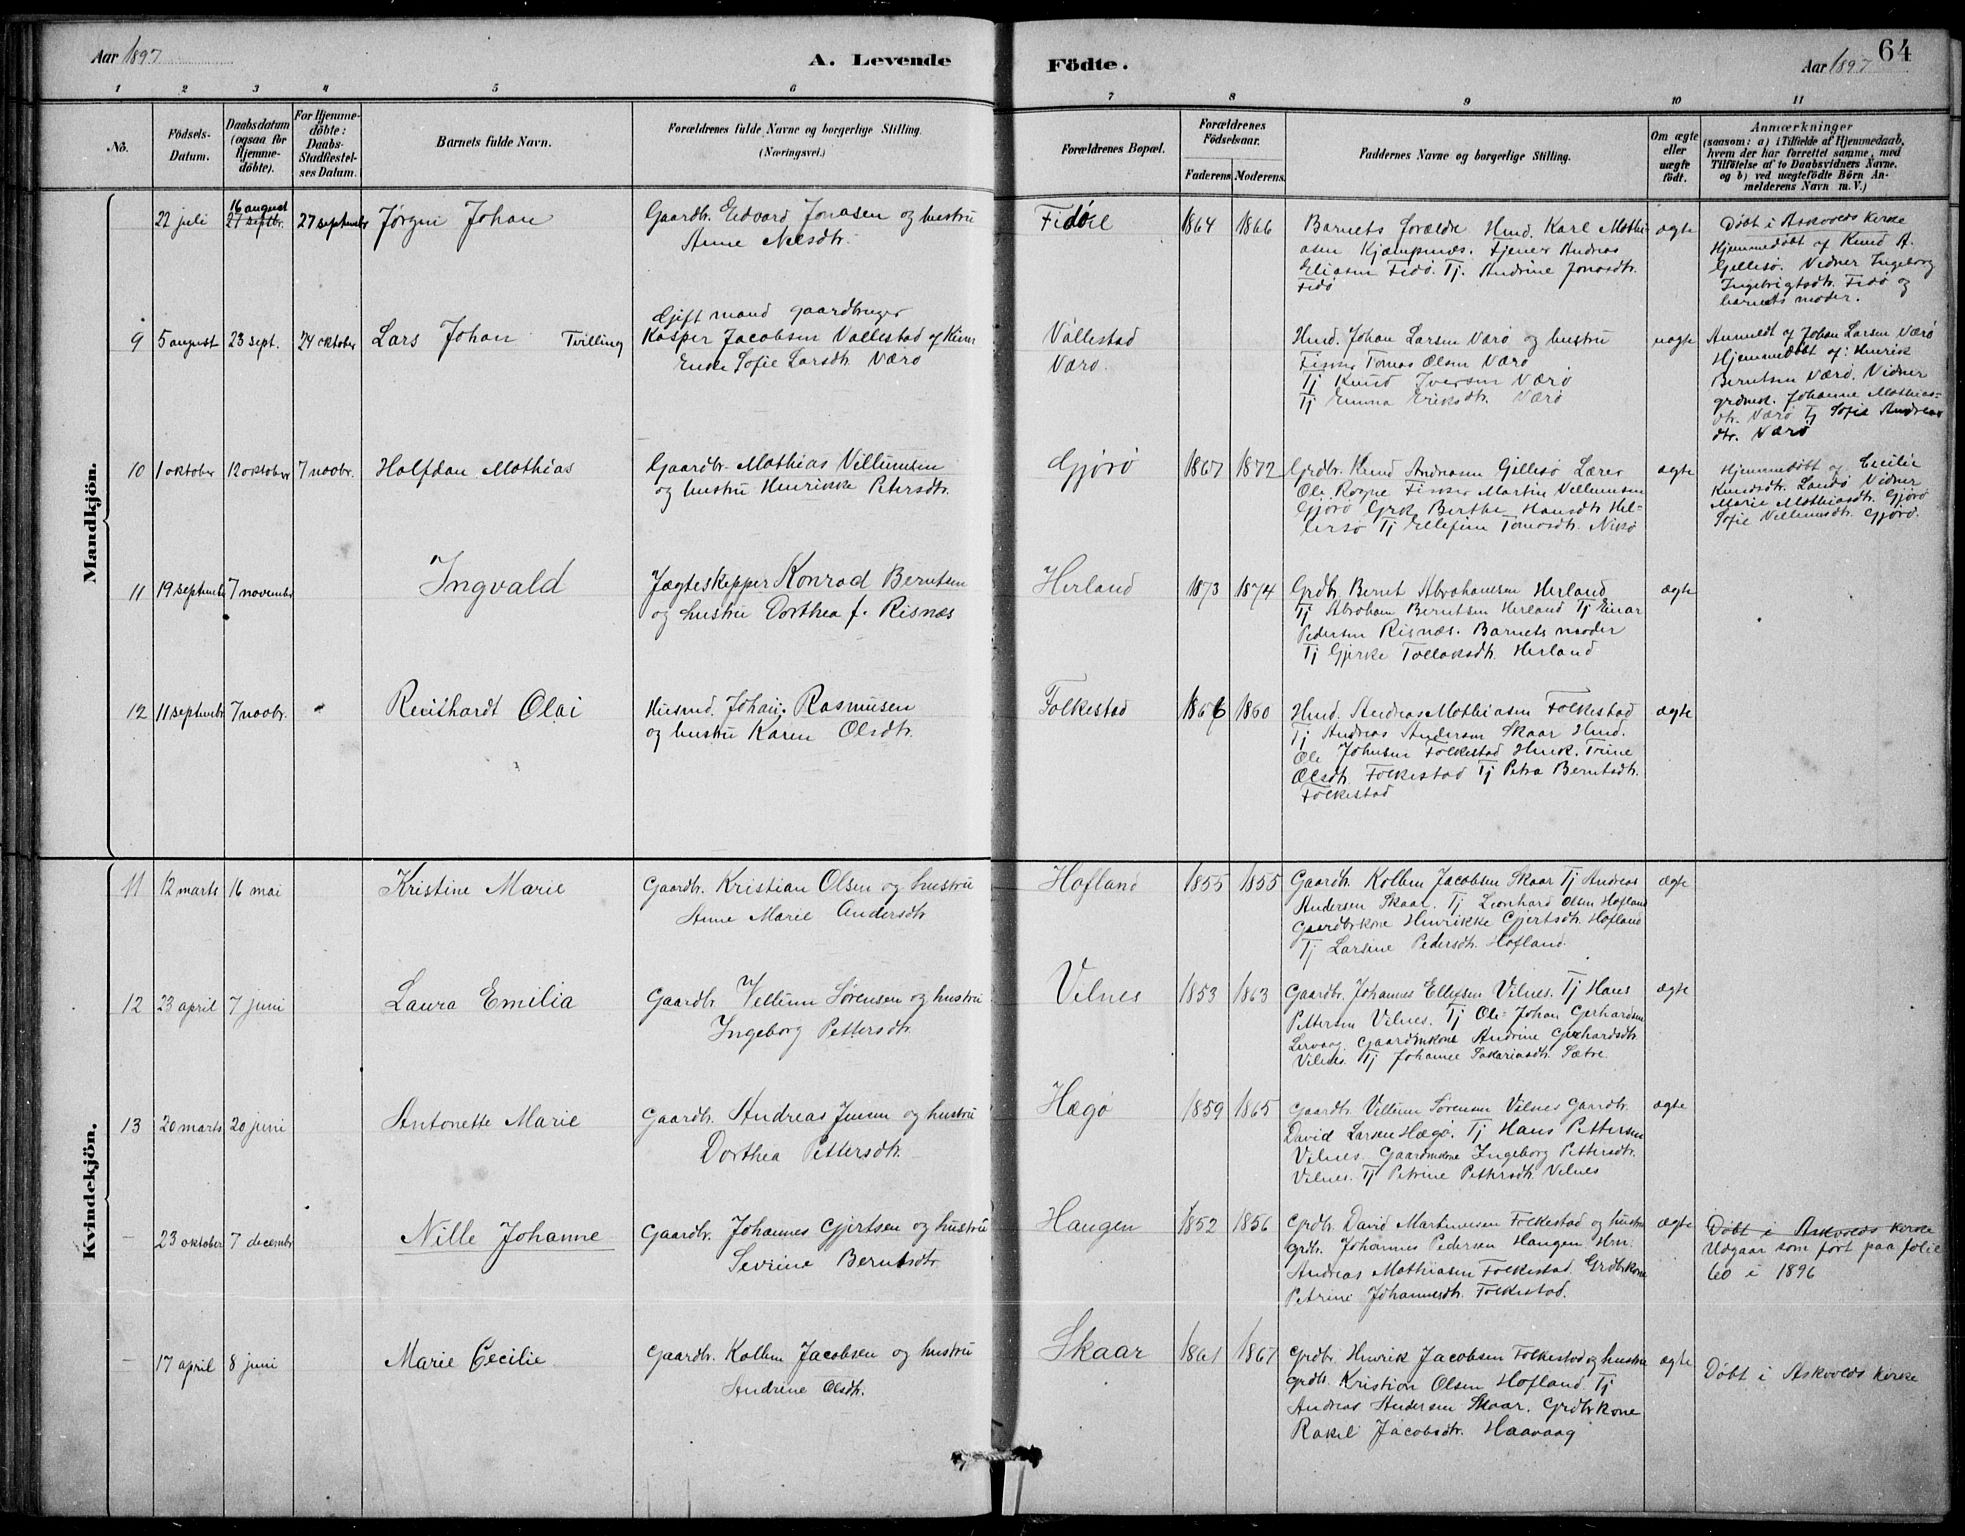 Aar 1897
A. Levende
Födte.
Aar 1897
64
1 2 3 4 5 6 7 8 9 10 11
No.
Födsels-Datum.
Daabsdatum (ogsaa for Hjemme-döbte).
For Hjemme-döbte: Daabs-Stadfæstel-ses Datum.
Barnets fulde Navn.
Forældrenes fulde Navne og borgerlige Stilling.
(Næringsvei.)
Forældrenes Bopæl.
Forældrenes Födselsaar.
Faderens. Moderens.
Faddernes Navne og borgerlige Stilling.
Om ægte eller uægte födt.
Anmærkninger
(saasom: a) i Tilfælde af Hjemmedaab, hvem der har forrettet samme, med Tilföielse af to Daabsvidners Navne, og b) ved uægtefödte Börn An-melderens Navn m. V.)
Mandkjön.
22 juli
16 august
27 septbr.
27 september
Jørgen Johan
Gaardbr. Edvard Jonasen og hustru
Anne Nilsdtr.
Fidøie
1864 1866
Barnets Forældre Hmd. Karl Mathi
asen Kjempenes. Tjener Andreas
Eliasen Fidø. Tj. Andrine Jonasdtr.
Fidø
ægte
Døbt i Askvolds Kirke
Hjemmedøbt af Knud A.
Gjellesø. Vidner Ingeborg
Ingebrigtsdtr. Fidø og
barnets moder.
9 5 august 23 sept. 24 oktober
Lars Johan Tvilling
Gift mand gaardbruger
Kasper Jacobsen Vallestad af Kinn
Enke Sofie Larsdtr Værø
Vallestad
Værø.
Hmd. Johan Larsen Værø og hustru
Fisker Tomas Olsen Værø
Tj Knud Iversen Værø
Tj Emma Eriksdtr. Værø
uægte
Anmeldt af Johan Larsen Værø
Hjemmedøbt af: Henrik
Berntsen Værø. Vidner
grdmk. Johanne Mathias-
dtr. Værø Tj Sofie Andreas
dtr. Værø
10 1 oktober 12 oktober 7 novbr.
Halfdan Mathias
Gaardbr. Mathias Villumsen
og hustru Henrikke Petersdtr.
Gjørø
1867 1872
Grdbr. Knud Andreasen Gjellesø Lærer
Ole Rogne Fisker Martin Vellumsen
Gjørø Grk Berthe Hansdtr Hel-
lersø Tj Ellefine Tomasdtr. Nisø
ægte
Hjemmedøbt af Cecilie
Knudsdtr. Landø Vidner
Marie Mathiasdtr. Gjørø
Sofie Vellumsdtr. Gjørø.
11 19 september 7 november
Ingvald
Jægteskipper Konrad Berntsen
og hustru Dorthea f. Risnæs
Herland
1873 1874
Grdbr. Bernt Abrahamsen Herland
Tj Abraham Berntsen Herland Tj Einar
Pedersen Risnæs. Barnets moder
Tj Gjerke Tollaksdtr. Herland
ægte
12 11 september 7 novbr.
Reinhardt Olai
Husmd. Johan Rasmusen
og hustru Karen Olsdtr.
Folkestad
1866 1860
Hmd. Andreas Mathiasen Folkestad
Tj Andreas Andersen Skaar Hmd.
Ole Johnsen Folkestad Hmk. Trine
Olsdtr. Folkestad Tj Petra Berntsdtr.
Folkestad
ægte
Kvindekjön.
11 12 marts 16 mai
Kristine Marie
Gaardbr. Kristian Olsen og hustru
Anne Marie Andersdtr
Hofland
1855 1855
Gaardbr. Kolben Jacobsen Skaar Tj Andreas
Andersen Skaar. Tj Leonhard Olsen Hofland
Gaardbrkone Henrikke Gjertsdtr. Hofland
Tj Larsine Pedersdtr. Hofland
ægte
12 23 april 7 juni
Laura Emilia
Gaardbr Vellum Sørensen og hustru
Ingeborg Pettersdtr
Vilnes
1853 1863
Gaardbr. Johannes Ellefsen Vilnes. Tj Hans
Pettersen Vilnes. Tj Ole Johan Gerhardsen
Lervaag Gaardmkone Andrine Gerhardsdtr.
Vilnes. Tj Johanne Sakariasdtr. Sætre.
ægte
13 20 marts 20 juni
Antonette Marie
Gaardbr. Andreas Jensen og hustru
Dorthea Pettersdtr.
Hægø
1859 1865
Gaardbr Vellum Sørensen Vilnes Gaardbr.
David Larsen Hægø. Tj Hans Pettersen
Vilnes. Gaardmkone Ingeborg Pettersdtr.
Vilnes. Tj Petrine Pettersdtr. Vilnes
ægte
- 23 oktober 7 decembr
Nille Johanne
Gaardbr. Johannes Gjertsen og hustru
Sevrine Berntsdtr
Haugen
1852 1856
Grdbr. David Martinusen Folkestad og hustru
grdbr. Johannes Pedersen Haugen Hm.
Andreas Mathiasen Folkestad. Grdbrkone
Petrine Johannesdtr. Folkestad.
ægte
Døbt i Askvolds Kirke
Udgaar som ført paa folie
60 i 1896
- 17 april 8 juni
Marie Cecilie
Gaardbr. Kolben Jacobsen og hustru
Andrine Olsdtr.
Skaar
1861 1867
Grdbr. Henrik Jacobsen Folkestad og hustru
grdbr. Kristian Olsen Hofland Tj
Andreas Andersen Skaar. Grdbrkone
Rakel Jacobsdtr. Haavaag
ægte
Døbt i Askvolds Kirke